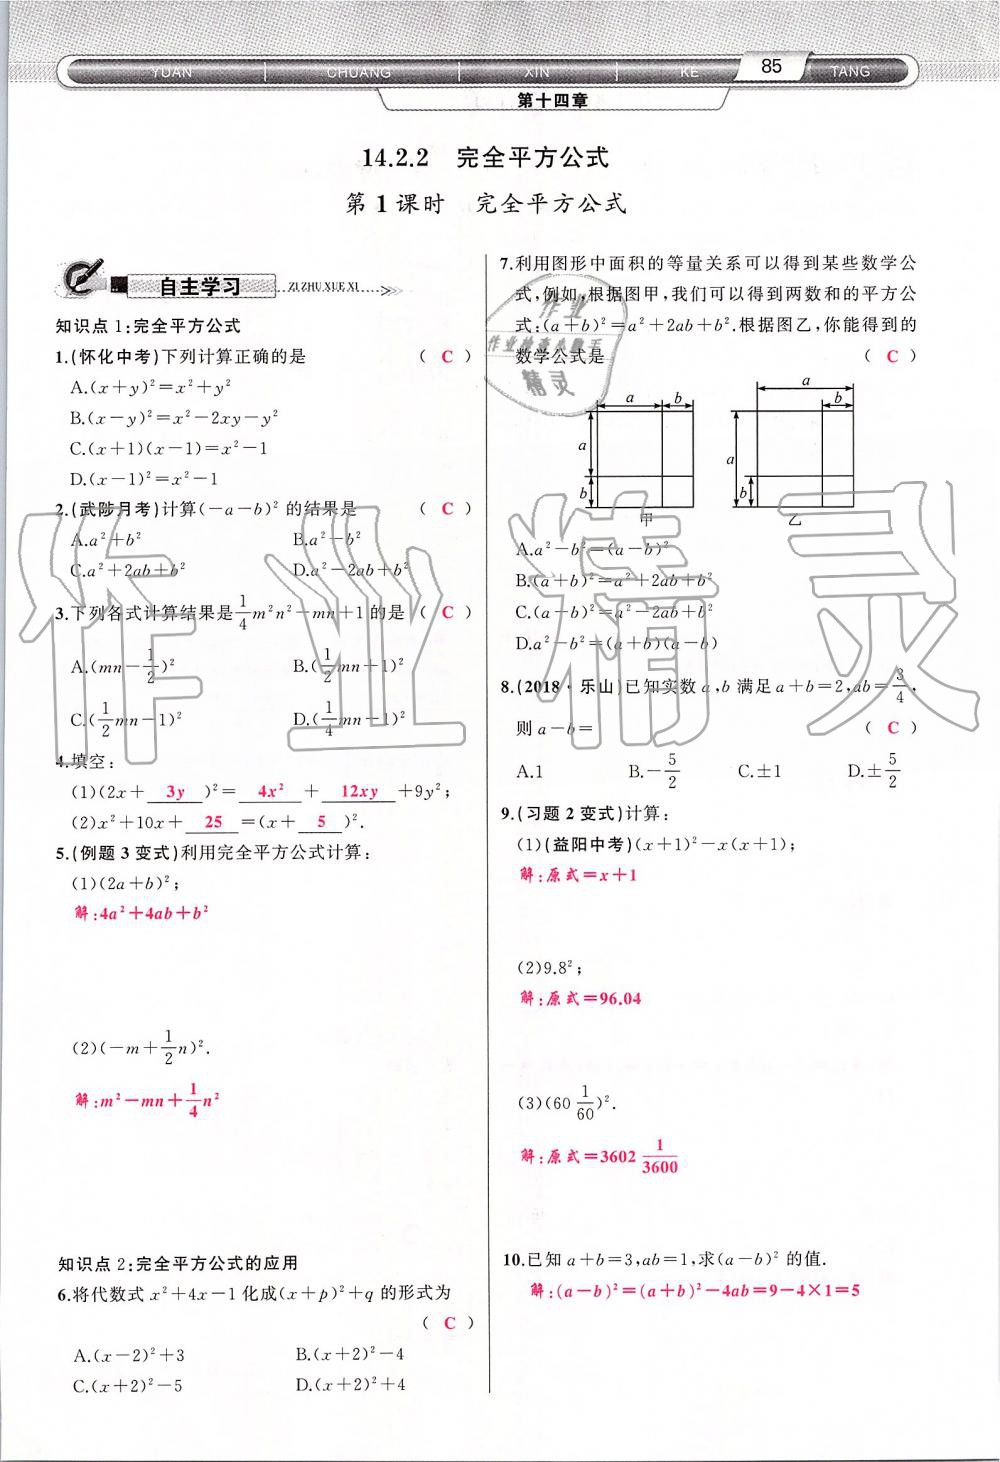 YUAN CHUANG XIN KE 85 TANG
第十四章
14.2.2 完全平方公式
第1课时 完全平方公式
自主学习 ZI ZHU XUE XI
知识点1:完全平方公式
1.(怀化中考)下列计算正确的是 ( C )
A.(x+y)²=x²+y²
B.(x-y)²=x²-2xy-y²
C.(x+1)(x-1)=x²-1
D.(x-1)²=x²-1
2.(武陟月考)计算(-a-b)²的结果是 ( C )
A.a²+b² B.a²-b²
C.a²+2ab+b² D.a²-2ab+b²
3.下列各式计算结果是1/4m²n²-mn+1的是 ( C )
A.(mn-1/2)² B.(1/2mn+1)²
C.(1/2mn-1)² D.(1/4mn-1)²
4.填空:
(1)(2x+ 3y )²= 4x² + 12xy +9y²;
(2)x²+10x+ 25 =(x+ 5 )².
5.(例题3变式)利用完全平方公式计算:
(1)(2a+b)²;
解:4a²+4ab+b²
(2)(-m+1/2n)².
解:m²-mn+1/4n²
知识点2:完全平方公式的应用
6.将代数式x²+4x-1化成(x+p)²+q的形式为
( C )
A.(x-2)²+3 B.(x+2)²-4
C.(x+2)²-5 D.(x+2)²+4
7.利用图形中面积的等量关系可以得到某些数学公
式,例如,根据图甲,我们可以得到两数和的平方公
式:(a+b)²=a²+2ab+b².根据图乙,你能得到的
数学公式是 ( C )
a b a b
a b a b
甲 乙
A.a²-b²=(a-b)²
B.(a+b)²=a²+2ab+b²
C.(a-b)²=a²-2ab+b²
D.a²-b²=(a+b)(a-b)
8.(2018·乐山)已知实数a,b满足a+b=2,ab=3/4,
则a-b= ( C )
A.1 B.-5/2 C.±1 D.±5/2
9.(习题2变式)计算:
(1)(益阳中考)(x+1)²-x(x+1);
解:原式=x+1
(2)9.8²;
解:原式=96.04
(3)(60 1/60)².
解:原式=3602 1/3600
10.已知a+b=3,ab=1,求(a-b)²的值.
解:(a-b)²=(a+b)²-4ab=9-4×1=5
作业精灵
作业
作业检查小助手
精灵